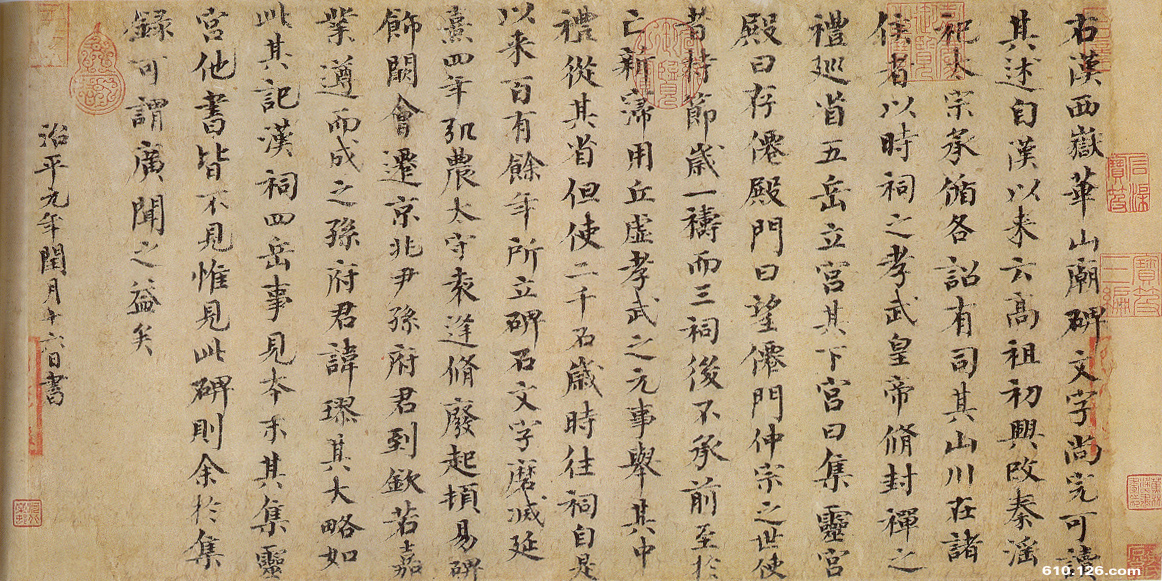 右漢西嶽華山廟碑文字尚完可讀
其述自漢以来云高祖初興改秦淫
祀太宗承循各詔有司其山川在諸
侯者以時祠之孝武皇帝脩封禪之
禮巡省五岳立宮其下宮曰集靈宮
殿曰存僊殿門曰望僊門仲宗之世使
者持節歲一禱而三祠後不承前至於
亡新寖用丘虛孝武之元事舉其中
禮從其省但使二千石歲時往祠自是
以来百有餘年所立碑石文字磨滅延
熹四年弘農太守袁逢脩廢起頓易碑
飾闕會遷京兆尹孫府君到欽若嘉
業遵而成之孫府君諱璆其大略如
此其記漢祠四岳事見本末其集靈
宮他書皆不見惟見此碑則余於集
録可謂廣聞之益矣
治平元年閏月十六日書
610.126.com